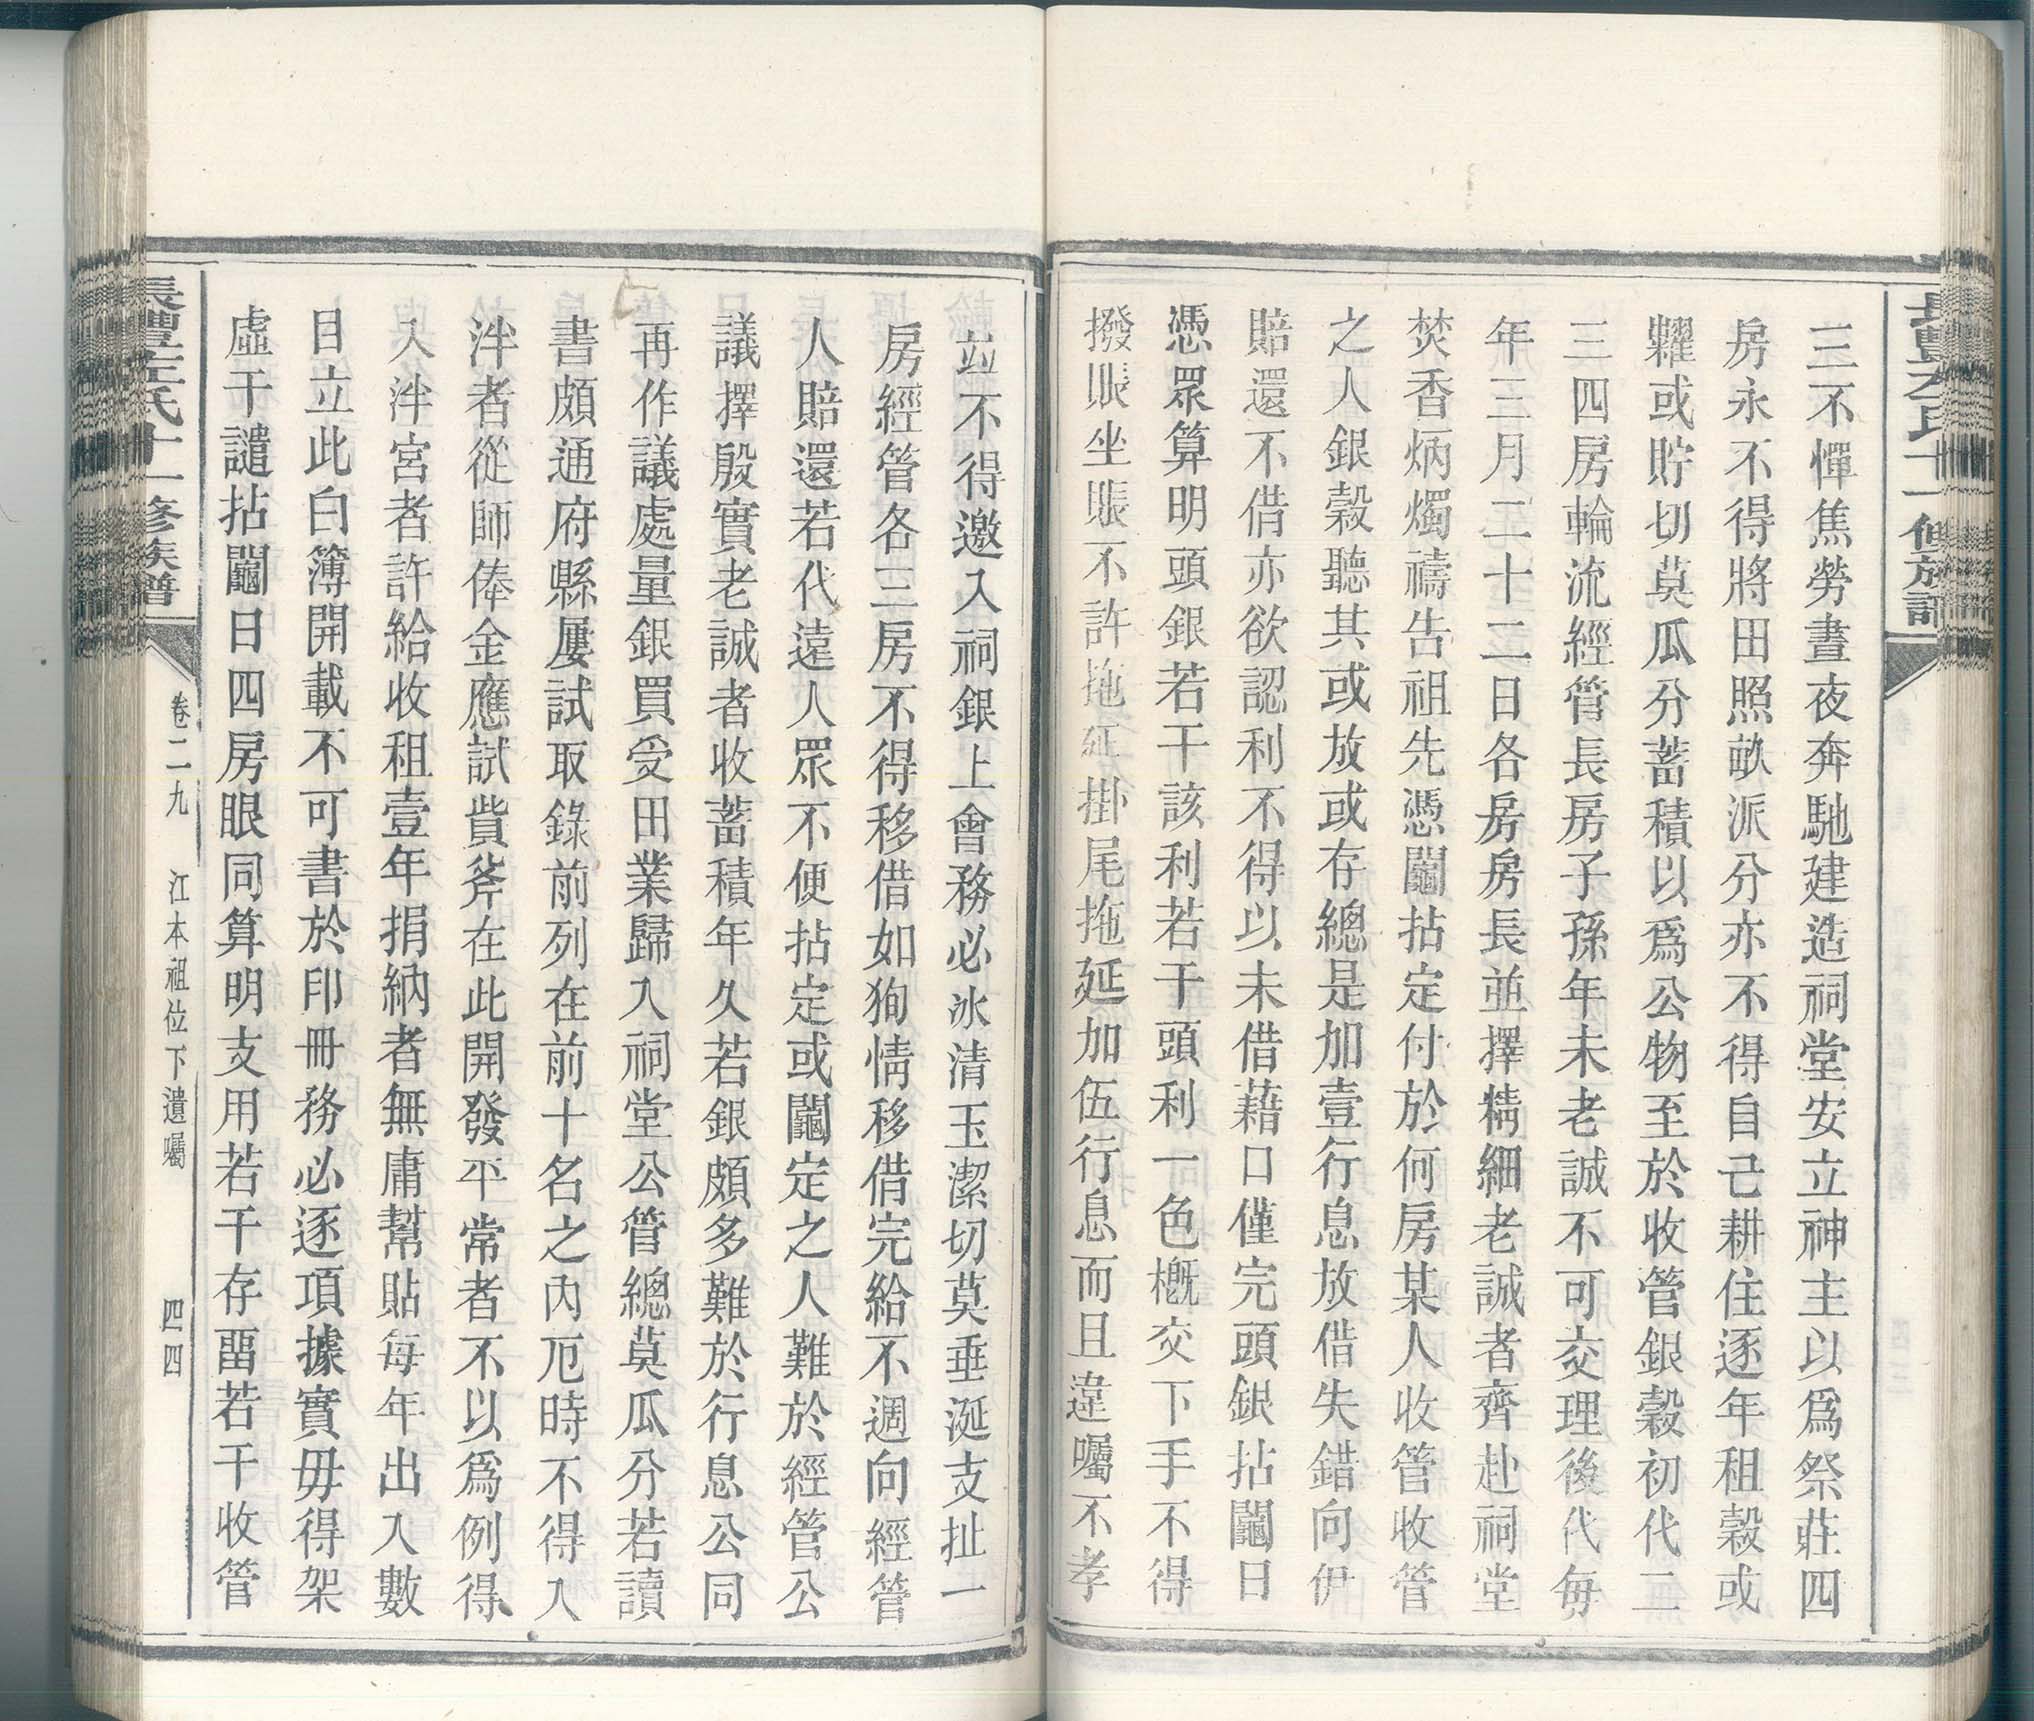 三不憚焦勞晝夜奔馳建造祠堂安立神主以爲祭莊四
房永不得將田照畝派分亦不得自己耕住逐年租穀或
糶或貯切莫瓜分蓄積以爲公物至於收管銀穀初代二
三四房輪流經管長房子孫年未老誠不可交理後代每
年三月二十二日各房房長並擇精細老誠者齊赴祠堂
焚香炳燭禱告祖先憑鬮拈定付於何房某人收管收管
之人銀穀聽其或放或存總是加壹行息放借失錯向伊
賠還不借亦欲認利不得以未借藉口僅完頭銀拈鬮日
憑眾算明頭銀若干該利若干頭利一色概交下手不得
撥賬坐賬不許拖延掛尾拖延加伍行息而且違囑不孝
並不得邀入祠銀上會務必冰清玉潔切莫垂涎支扯一
房經管各三房不得移借如狥情移借完給不週向經管
人賠還若代遠人眾不便拈定或鬮定之人難於經管公
議擇殷實老誠者收蓄積年久若銀頗多難於行息公同
再作議處量銀買受田業歸入祠堂公管總莫瓜分若讀
書頗通府縣屢試取錄前列在前十名之內厄時不得入
泮者從師俸金應試貲斧在此開發平常者不以爲例得
入泮宮者許給收租壹年捐納者無庸幫貼每年出入數
目立此白簿開載不可書於印冊務必逐項據實毋得架
虛干譴拈鬮日四房眼同算明支用若干存畱若干收管
卷二九
江本祖位下遺囑
四四